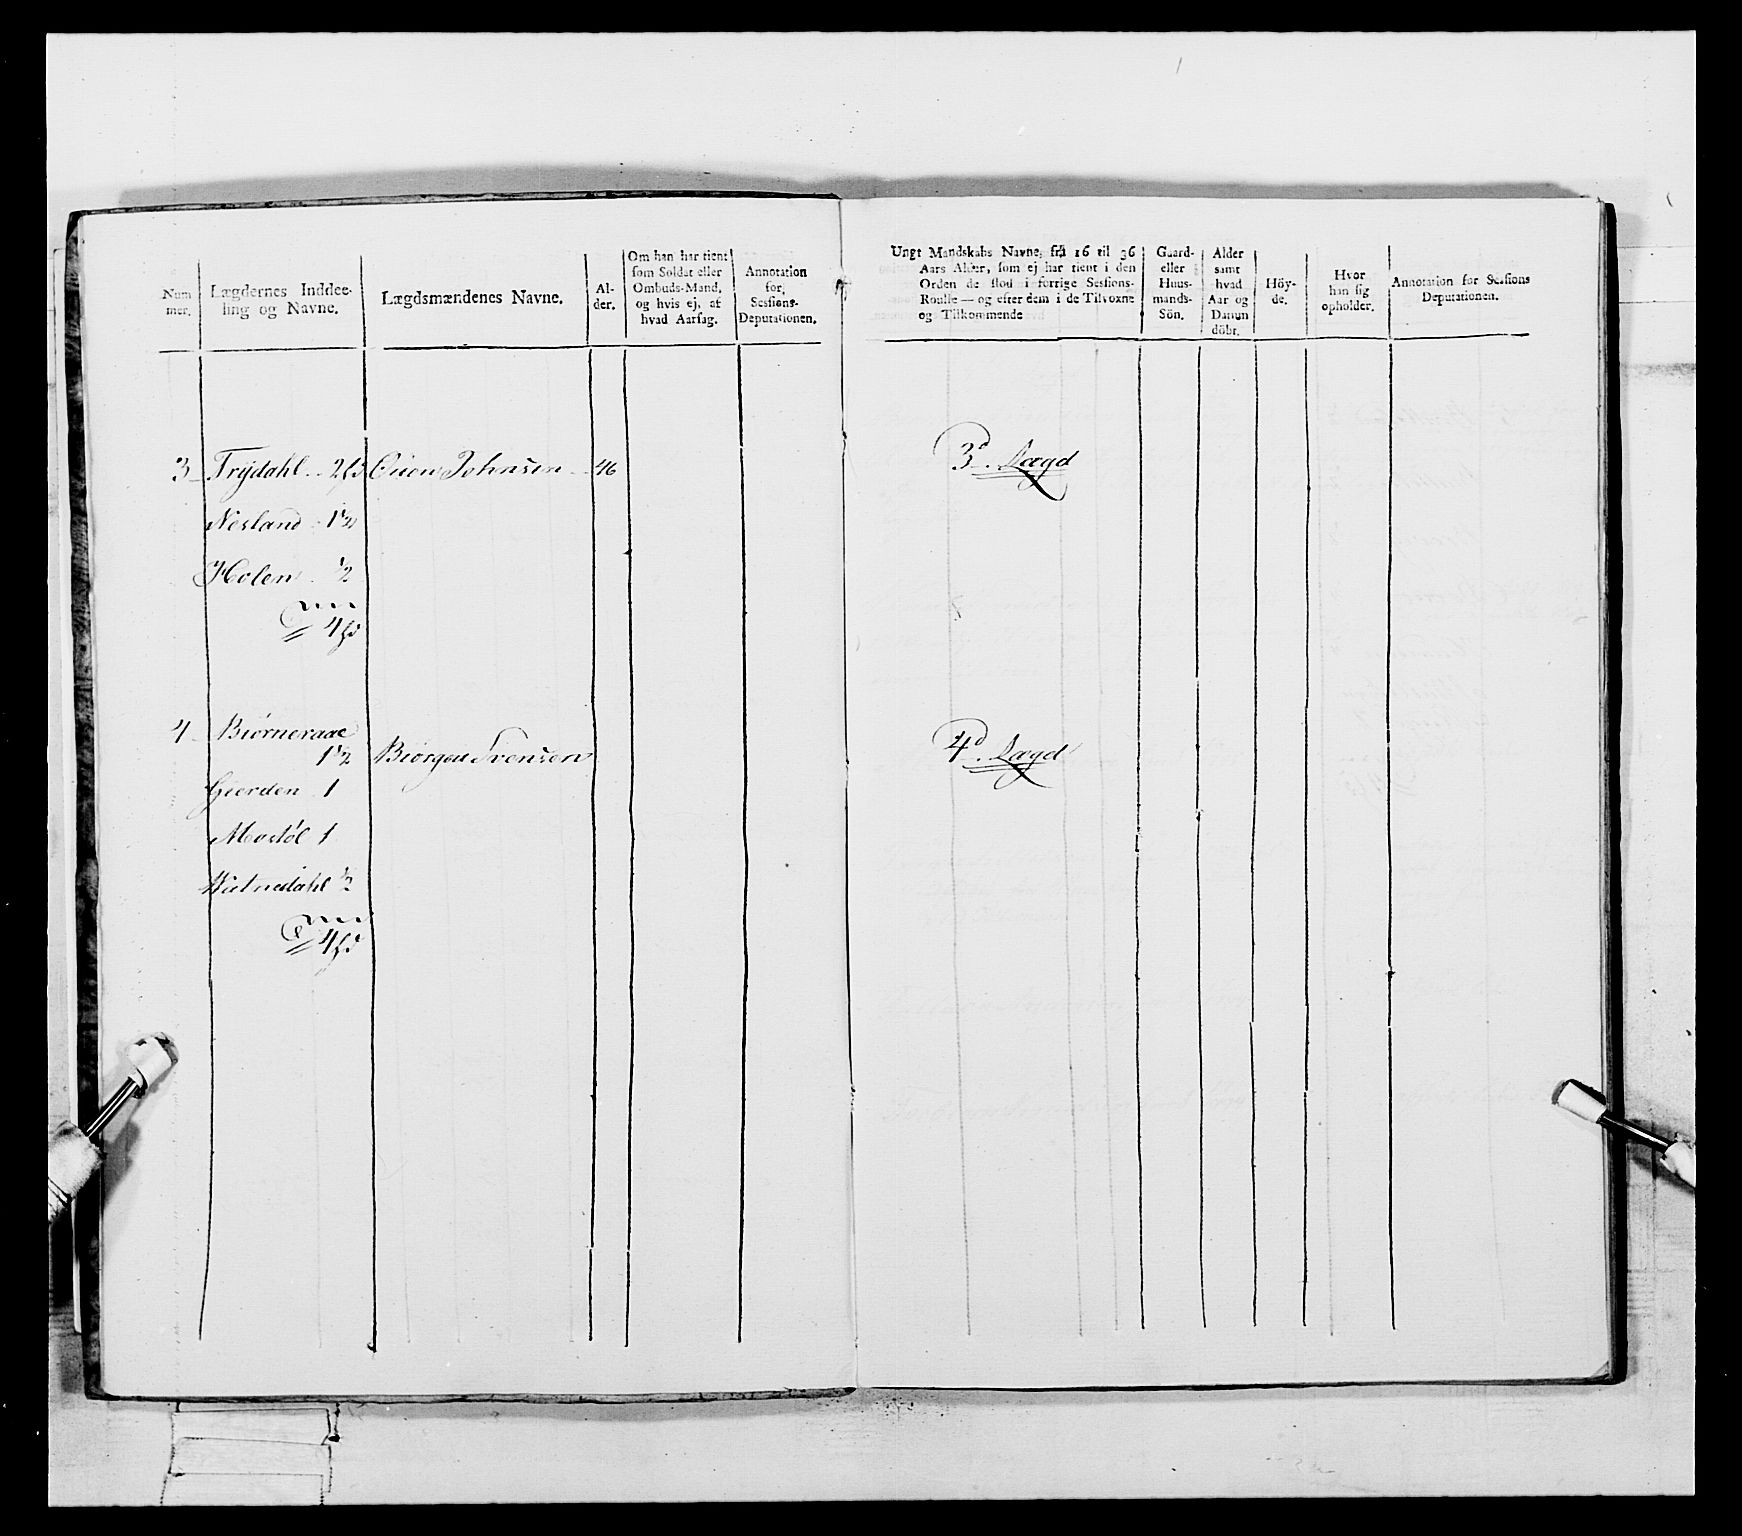 Num
mer.
Lægdernes Inddee-
ling og Navne.
Lægdsmændenes Navne.
Al-
der.
Om han har tient
som Soldat eller
Ombuds-Mand,
og hvis ej, af
hvad Aarsag.
Annotation
for
Sessions-
Deputationen.
3 Trydahl 2 Ouen Johnsen 46
Nesland 1½
Holen ½
4
4 Biørneraae
1½ Biørgou Svensen
Gierden 1
Mostøl 1
Watnedahl ½
4
Ungt Mandskabs Navne, frå 16 til 36
Aars Alder, som ej har tient i den
Orden de stod i forrige Sessions-
Roulle — og efter dem i de Tilvoxne
og Tilkommende
Gaard-
eller
Huus-
mands-
Sön.
Alder
samt
hvad
Aar og
Datum
döbt.
Höy-
de.
Hvor
han sig
opholder.
Annotation for Sessions
Deputationen.
3d. Lægd
4d. Lægd